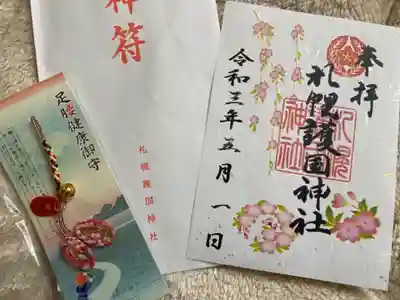 神符
札幌護国神社
足腰健康御守
奉拝
札幌護国神社
札幌
神社
令和三年五月一日